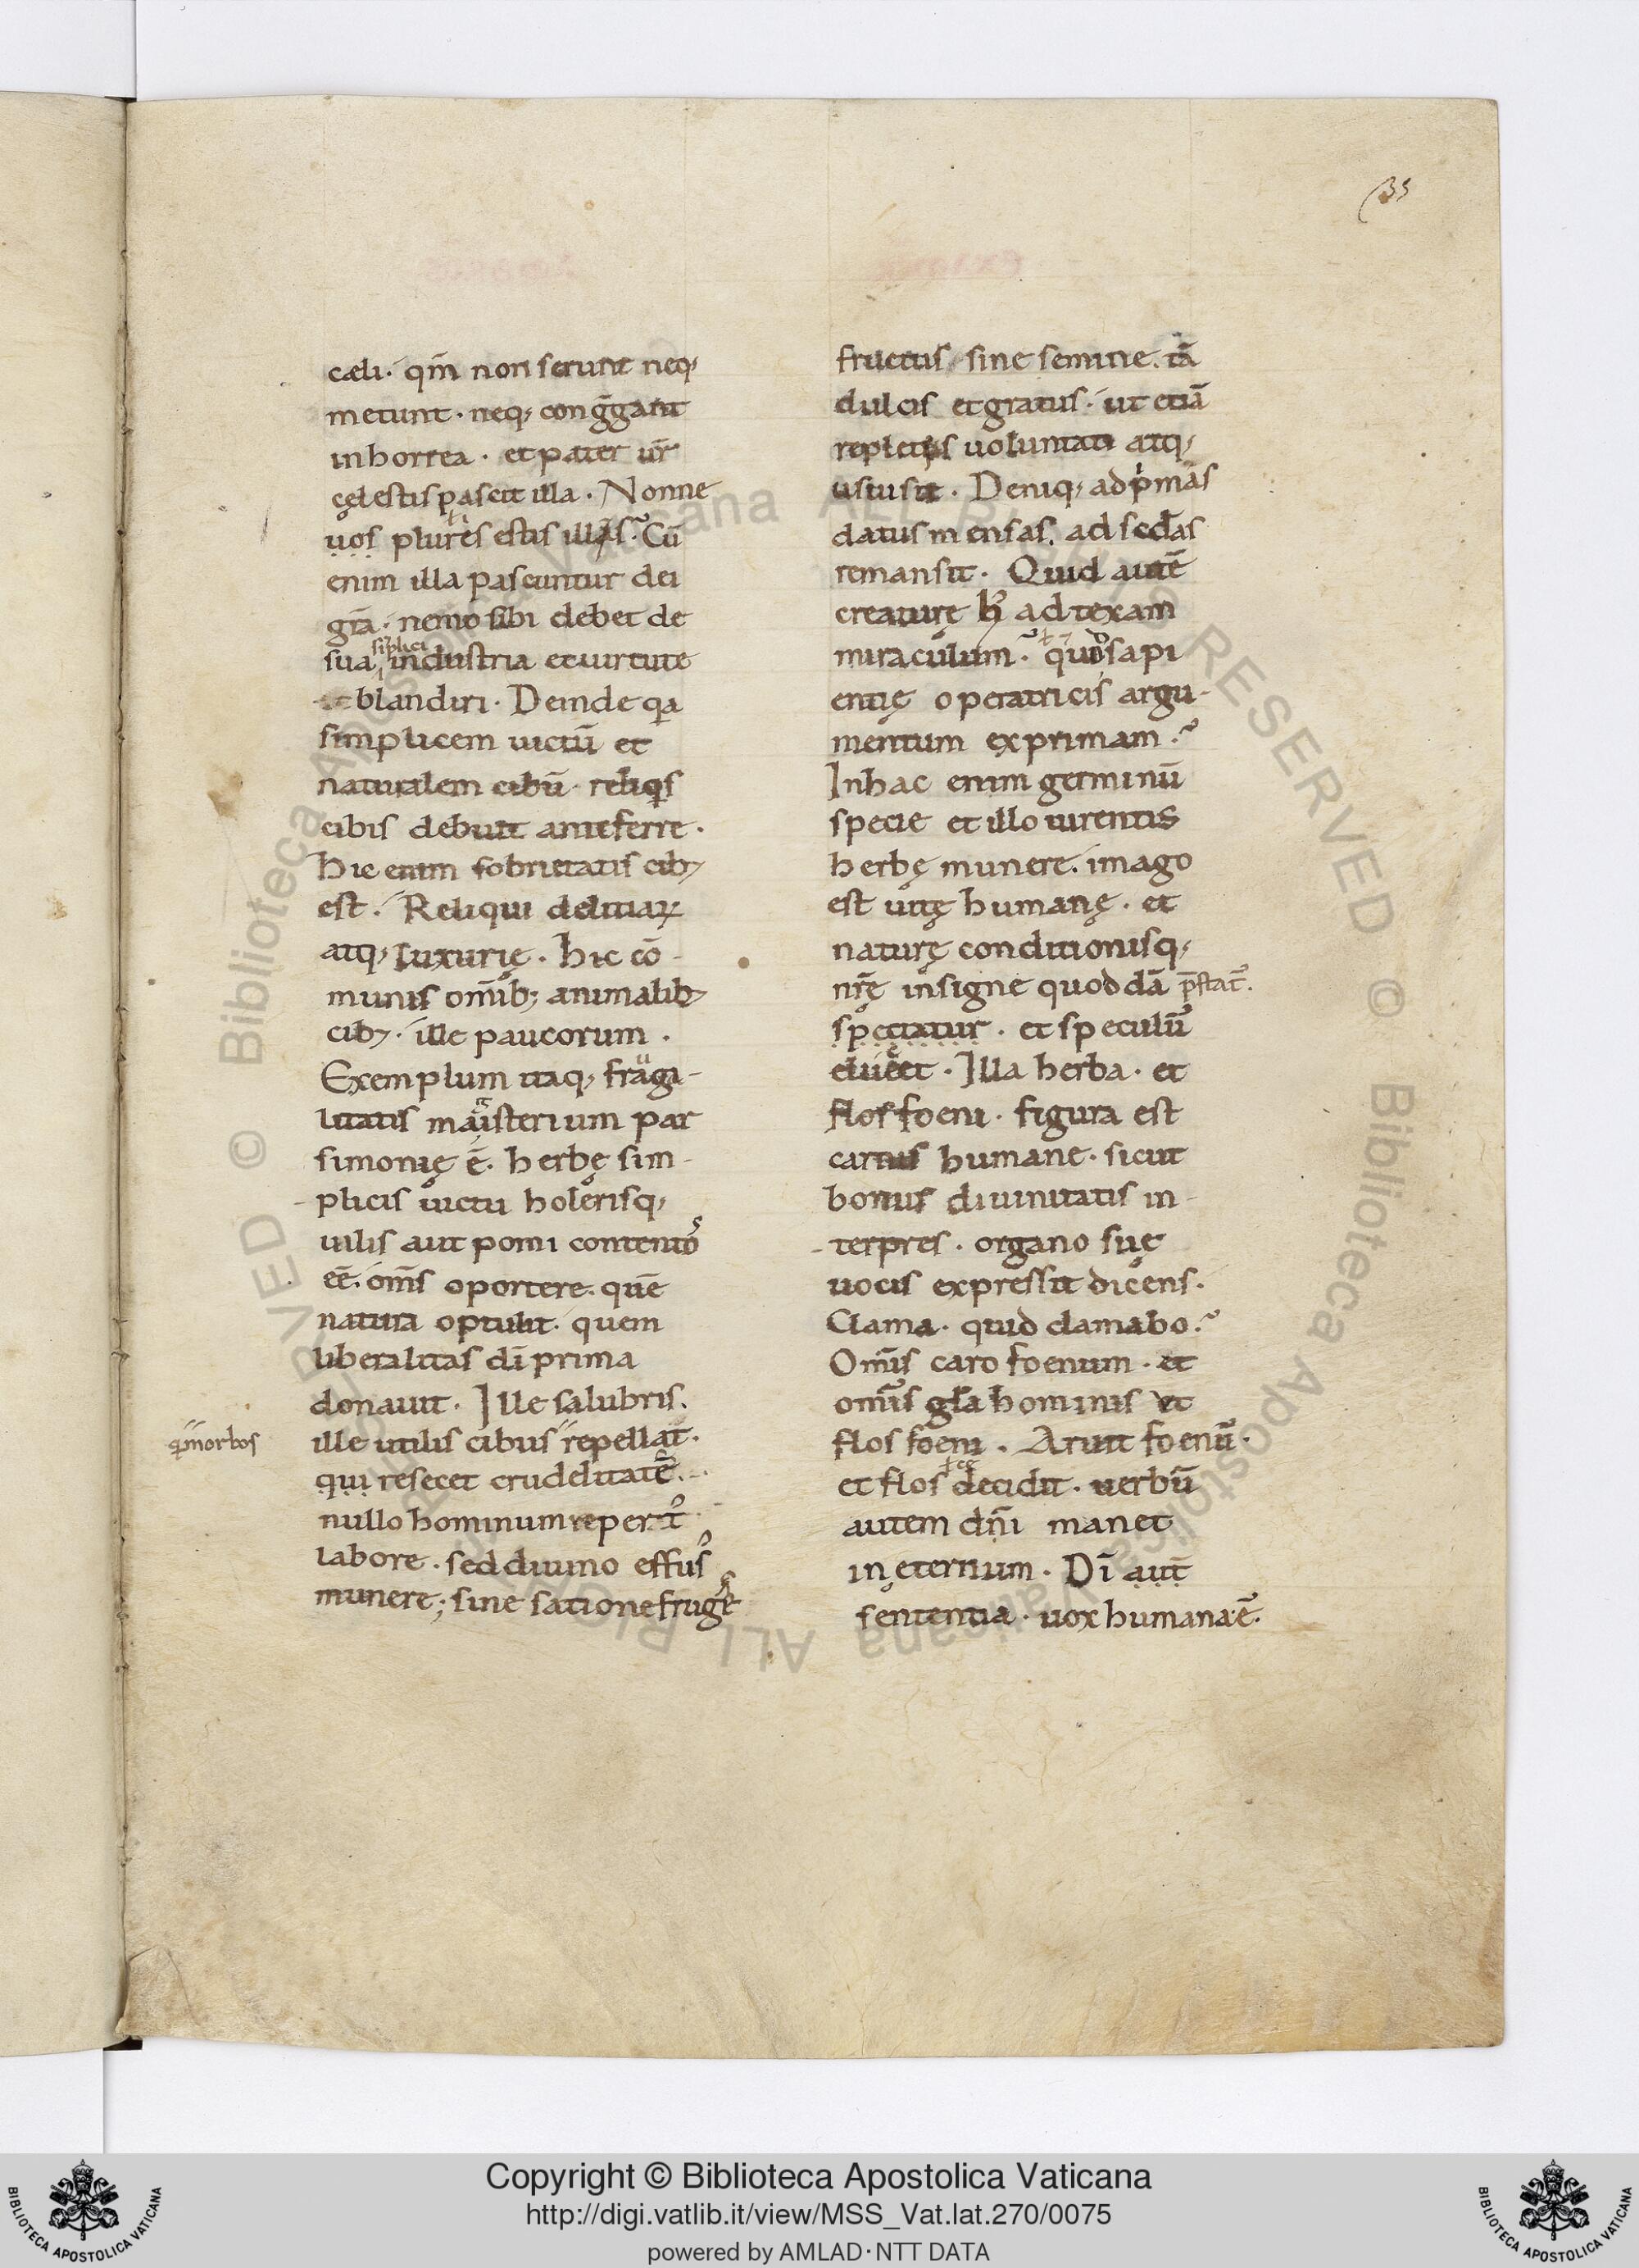 35
cæli. qm̄ non serunt neq;
metunt. neq; congꝛ̄gant
in horrea. et pater ur̄
cęlestis pascit illa. Nonne
uos plures estis illis? Cū
enim illa pascuntur dei
grā. nemo sibi debet de
sua industria et uirtute
siplici
blandiri. Deinde qa
simplicem uictū et
naturalem cibū. reliqis
cibis debuit anteferre.
hic enim sobrietatis cib;
est. Reliqui delitiaꝝ
atq; luxurię. hic cō-
munis om̄ib; animalib;
cib;. ille paucorum.
Exemplum itaq; fragi-
litatis maisterium par
simonię ē. herbę sim-
plicis uictu holerisq;
uilis aut pomi contentos
eē. om̄s oportere. quē
natura optulit. quem
liberalitas dī prima
donauit. Ille salubris.
ille utilis cibus repellat.
qi morbos
qui resecet crudelitatē.
nullo hominum repert᷒
labore. sed diuino effus᷒
munere; sine satione frugē
fructus. sine semine. tā
dulcis et gratus. ut etiā
repletis uoluntati atq;
usui sit. Deniq; ad pimas
datus mensas. ad scdas
remansit. Quid autē
creaturę h; ad texam
miraculum? quod sapi
entię operatricis argu-
mentum exprimam?
In hac enim germinū
specie et illo uirentis
herbę munere. imago
est uitę humanę. et
naturę conditionisq;
nr̄ę insigne quoddā p̄stat᷒.
spectatur. et speculū
eluceet. Illa herba. et
flos foeni. figura est
carnis humane. sicut
bonus diuinitatis in-
terpres. organo suę
uocis expressit dicens.
Clama. quid clamabo?
Omīs caro foenum. et
omīs gl̄a hominis ut
flos foeni. Aruit foenū.
et flos decidit. uerbū
autem dn̄i manet
in ęternum. Dī aut̄
sententia. uox humana ē.
Copyright © Biblioteca Apostolica Vaticana
http://digi.vatlib.it/view/MSS_Vat.lat.270/0075
powered by AMLAD·NTT DATA
BIBLIOTECA APOSTOLICA VATICANA
BIBLIOTECA APOSTOLICA VATICANA
© Biblioteca Apostolica Vaticana ALL RIGHTS RESERVED © Biblioteca Apostolica Vaticana ALL RIGHTS RESERVED